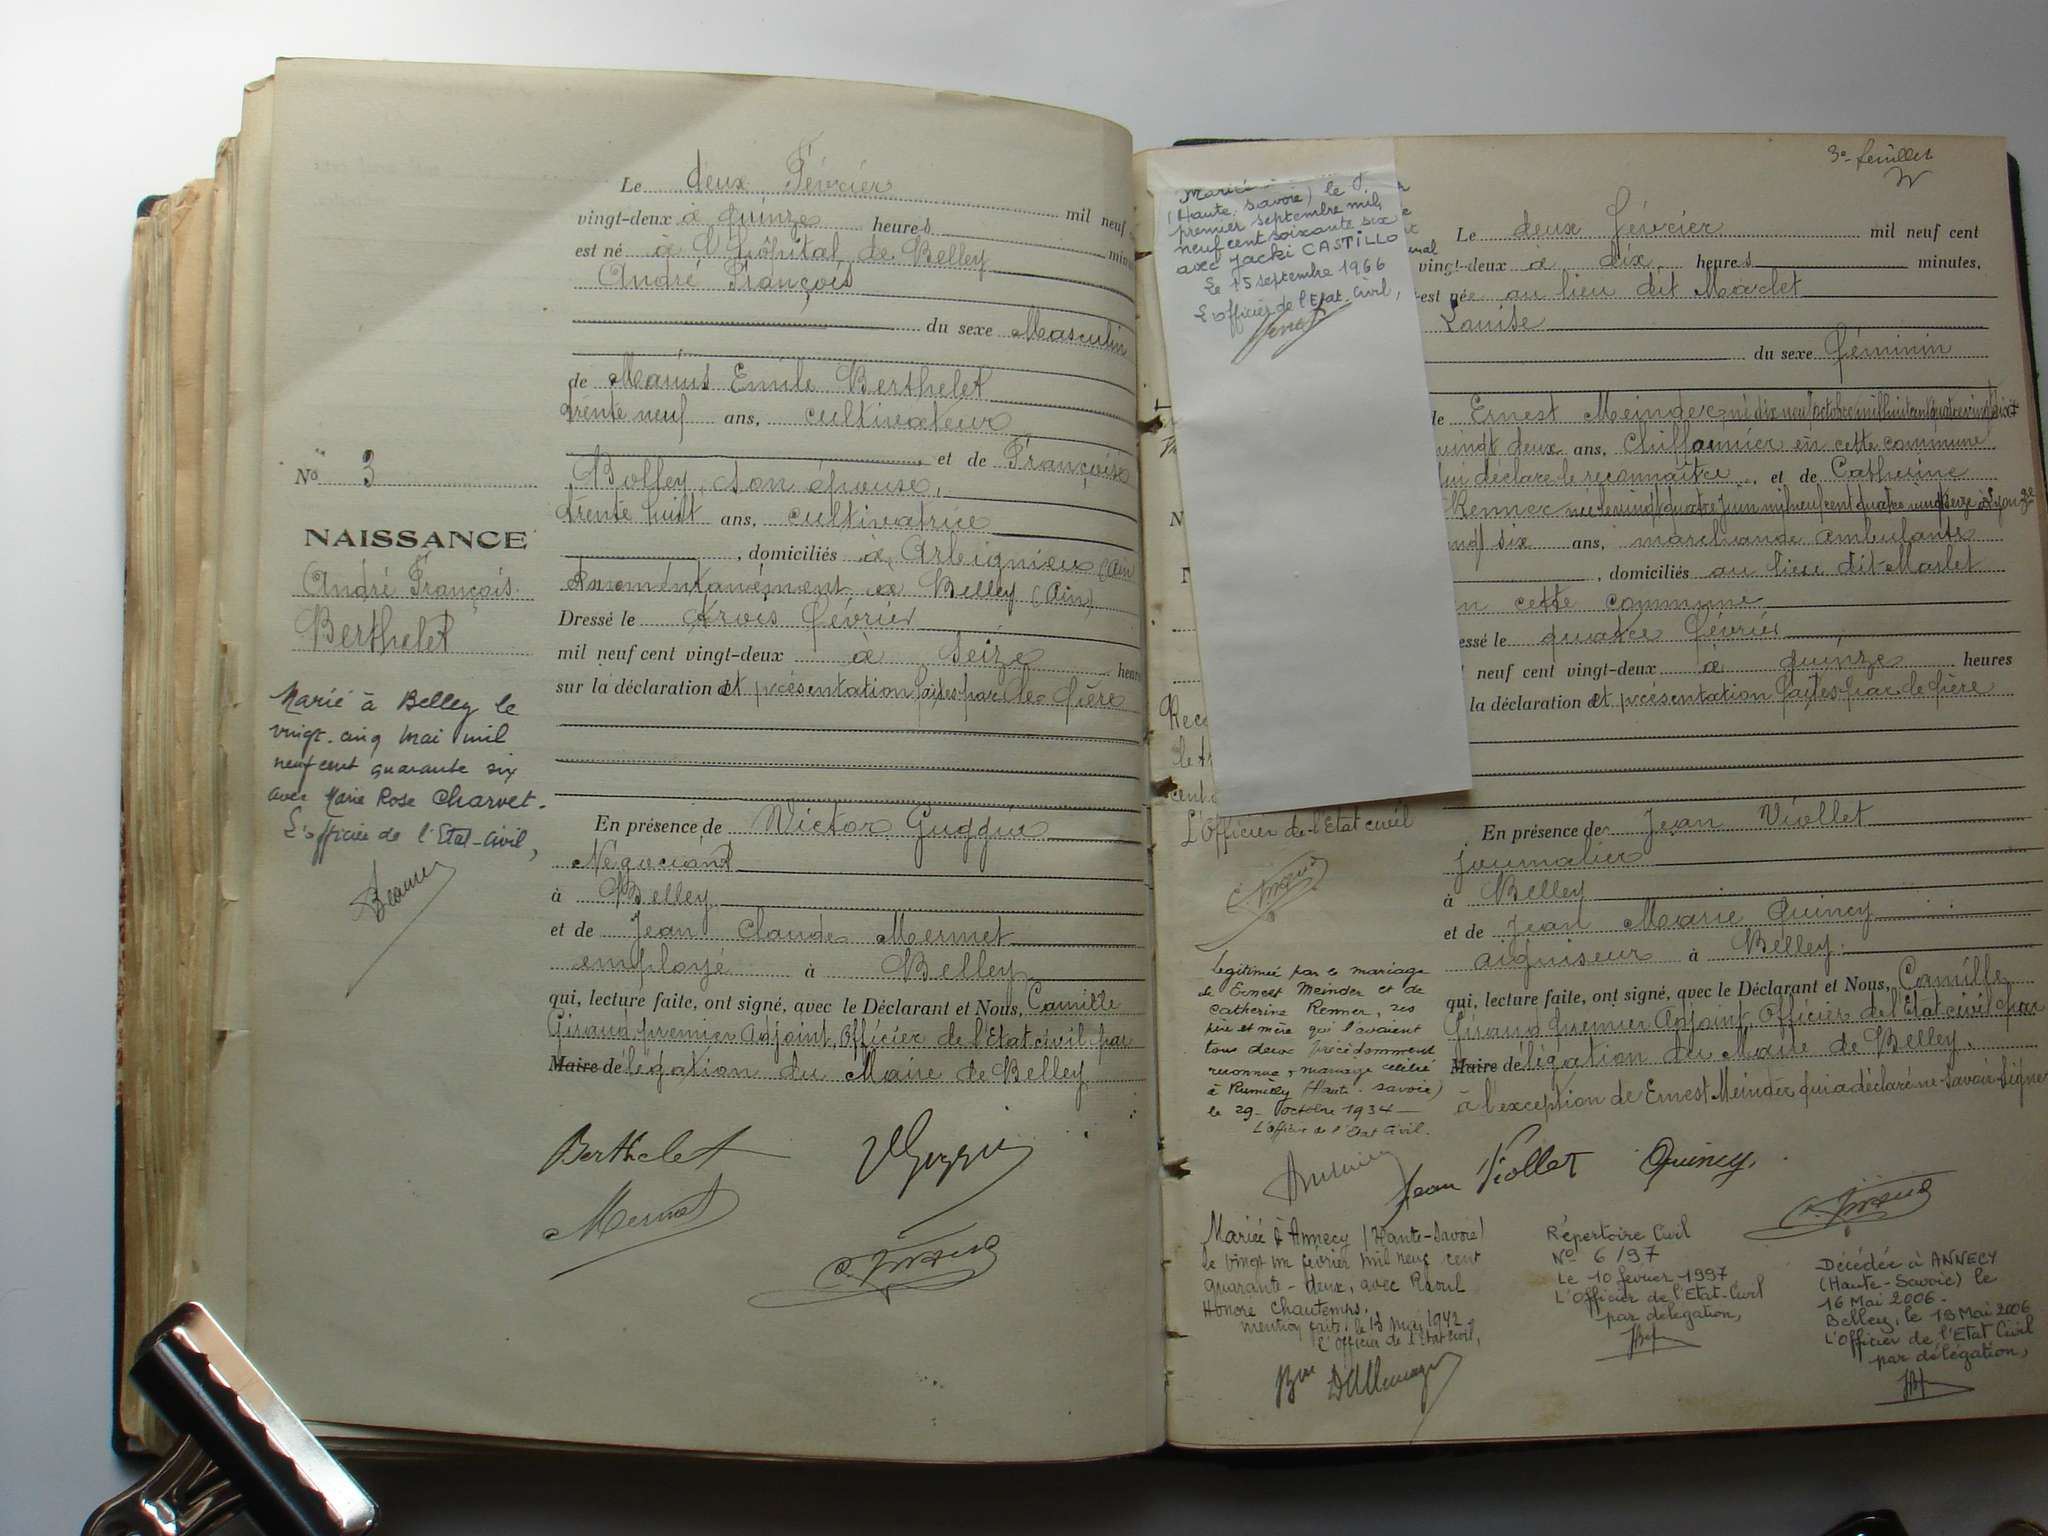 Le deux Février mil neuf
vingt-deux à quinze heures minu
est né à l'hôpital de Belley
André François
du sexe Masculin
de Marius Emile Berthelet
trente neuf ans, cultivateur
et de Françoise
Bolley, son épouse,
trente huit ans, cultivatrice
, domiciliés à Arbignieu (Ain
momentanément à Belley (Ain)
Dressé le trois Février
mil neuf cent vingt-deux à seize heure
sur la déclaration et présentation faites par le père
En présence de Victor Guggia
Négociant
à Belley
et de Jean Claude Mermet
employé à Belley
qui, lecture faite, ont signé, avec le Déclarant et Nous, Camille
Giraud premier Adjoint, Officier de l'Etat civil par
Maire délégation du Maire de Belley
Berthelet
Mermet
No 3
NAISSANCE
André François
Berthelet
Marié à Belley le
vingt-cinq mai mil
neuf cent quarante six
avec Marie Rose Charvet.
L'officier de l'Etat-Civil,
3e feuillet
(Haute-Savoie) le
premier septembre mil
neuf cent soixante six
avec Jacki CASTILLO
Le 15 septembre 1966
L'officier de l'Etat-Civil,
Le deux février mil neuf cent
vingt-deux à dix heures minutes,
est née au lieu dit
Louise
du sexe féminin
de Ernest Meinder, né dix neuf octobre mil huit cent quatre vingt dix
vingt deux ans, Chiffonnier en cette commune
qui déclare le reconnaître, et de Catherine
Renner
six ans, marchande ambulante
, domiciliés au lieu dit
en cette commune
essé le quatre février
neuf cent vingt-deux à quinze heures
la déclaration et présentation faites par le père
En présence de Jean Viollet
journalier
à Belley
et de Jean Marie Quincy
aiguiseur à Belley
qui, lecture faite, ont signé, avec le Déclarant et Nous, Camille
Giraud premier Adjoint, Officier de l'Etat civil par
Maire délégation du Maire de Belley.
à l'exception de Ernest Meinder qui a déclaré ne savoir signer
Jean Viollet Quincy
L'Officier de l'Etat civil
Légitimée par le mariage
de Ernest Meinder et de
Catherine Renner, ses
père et mère qui l'avaient
tous deux précédemment
reconnue, mariage célébré
à Rumilly (Haute-Savoie)
le 29 octobre 1934
L'officier de l'Etat Civil.
Mariée à Annecy (Haute-Savoie)
le vingt un février mil neuf cent
quarante-deux, avec Raoul
Honoré Chautemps.
mention faite le 13 mai 1942
L'Officier de l'Etat Civil,
Répertoire Civil
N° 6/97
Le 10 février 1997
L'Officier de l'Etat-Civil
par délégation,
Décédée à ANNECY
(Haute-Savoie) le
16 Mai 2006.
Belley, le 18 Mai 2006
L'Officier de l'Etat Civil
par délégation,